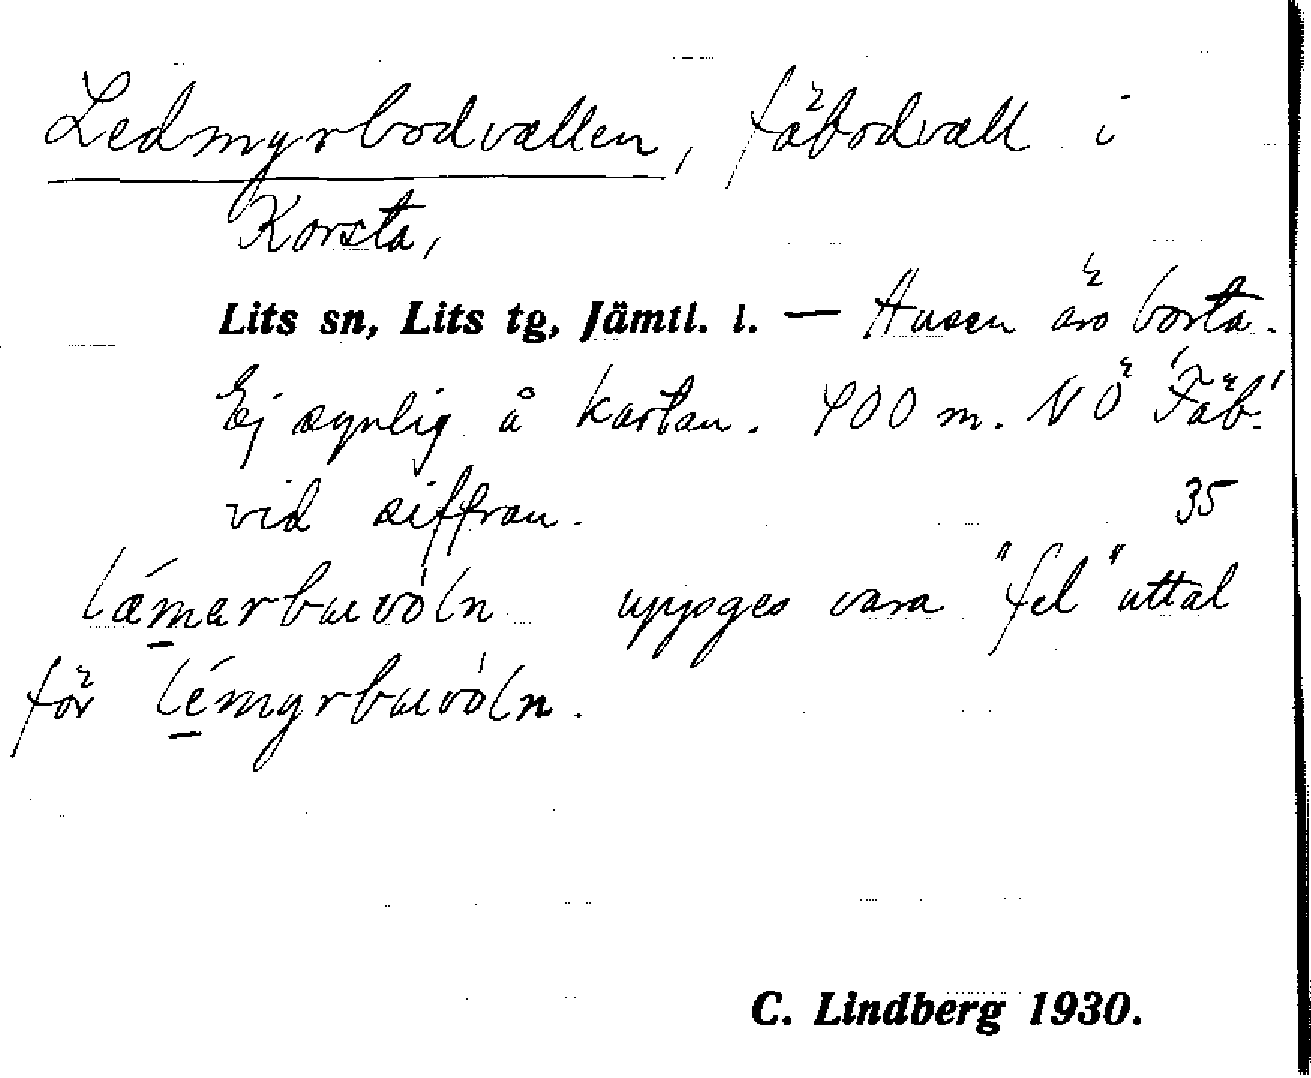 Ledmyrbodvallen, fäbodvall i
Korsta,
Lits sn, Lits tg, Jämtl. l. — Husen äro borta.
Ej synlig å kartan. 400 m. NÖ 'Fäb.'
vid siffran. 35
lǽmarbuvóln uppges vara "fel" uttal
för lémyrbuvóln.
C. Lindberg 1930.